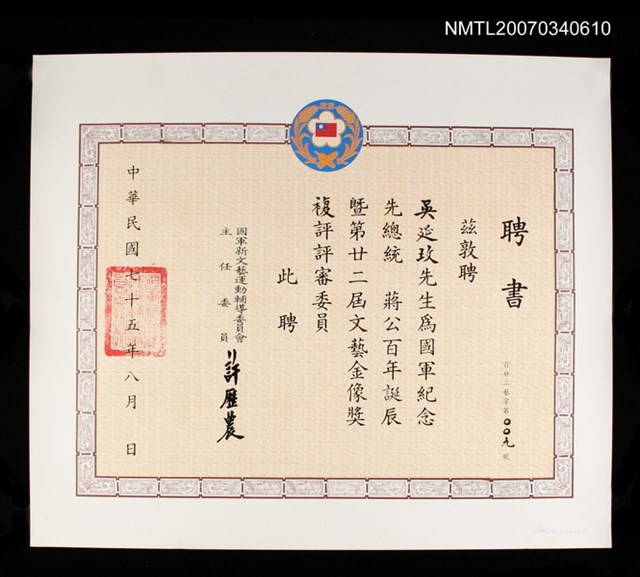 NMTL20070340610
22
聘書
百廿二藝字第〇〇九號
茲敦聘
吳延玫先生為國軍紀念
先總統　蔣公百年誕辰
暨第廿二屆文藝金像獎
複評評審委員
此聘
國軍新文藝運動輔導委員會
主任委員 許歷農
中華民國七十五年八月　日